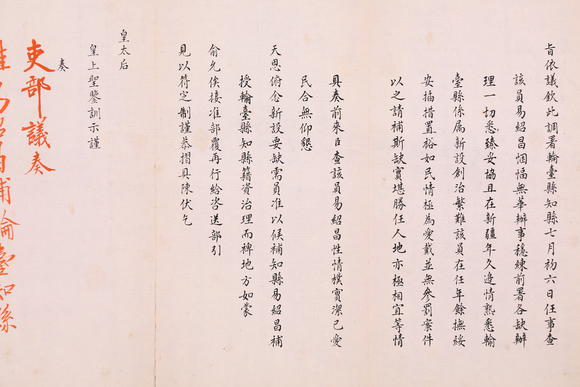 旨依議欽此調署輪臺縣知縣七月初六日任事查
該員易紹昌悃愊無華辦事穩練前署各缺辦
理一切悉臻妥協且在新疆年久邊情熟悉輪
臺縣係屬新設創治繁難該員在任年餘撫綏
安插措置裕如民情極為愛戴並無參罰案件
以之請補斯缺實堪勝任人地亦極相宜等情
具奏前來臣查該員易紹昌性情樸實潔己愛
民合無仰懇
天恩俯念新設要缺需員准以候補知縣易紹昌補
授輪臺縣知縣籍資治理而裨地方如蒙
俞允俟接准部覆再行給咨送部引
見以符定制謹恭摺具陳伏乞
皇太后
皇上聖鑒訓示謹
奏
吏部議奏